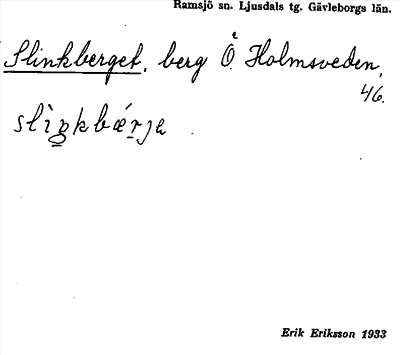 Ramsjö sn. Ljusdals tg. Gävleborgs län.
Slinkberget. berg Ö. Holmsveden,
46.
Erik Eriksson 1933